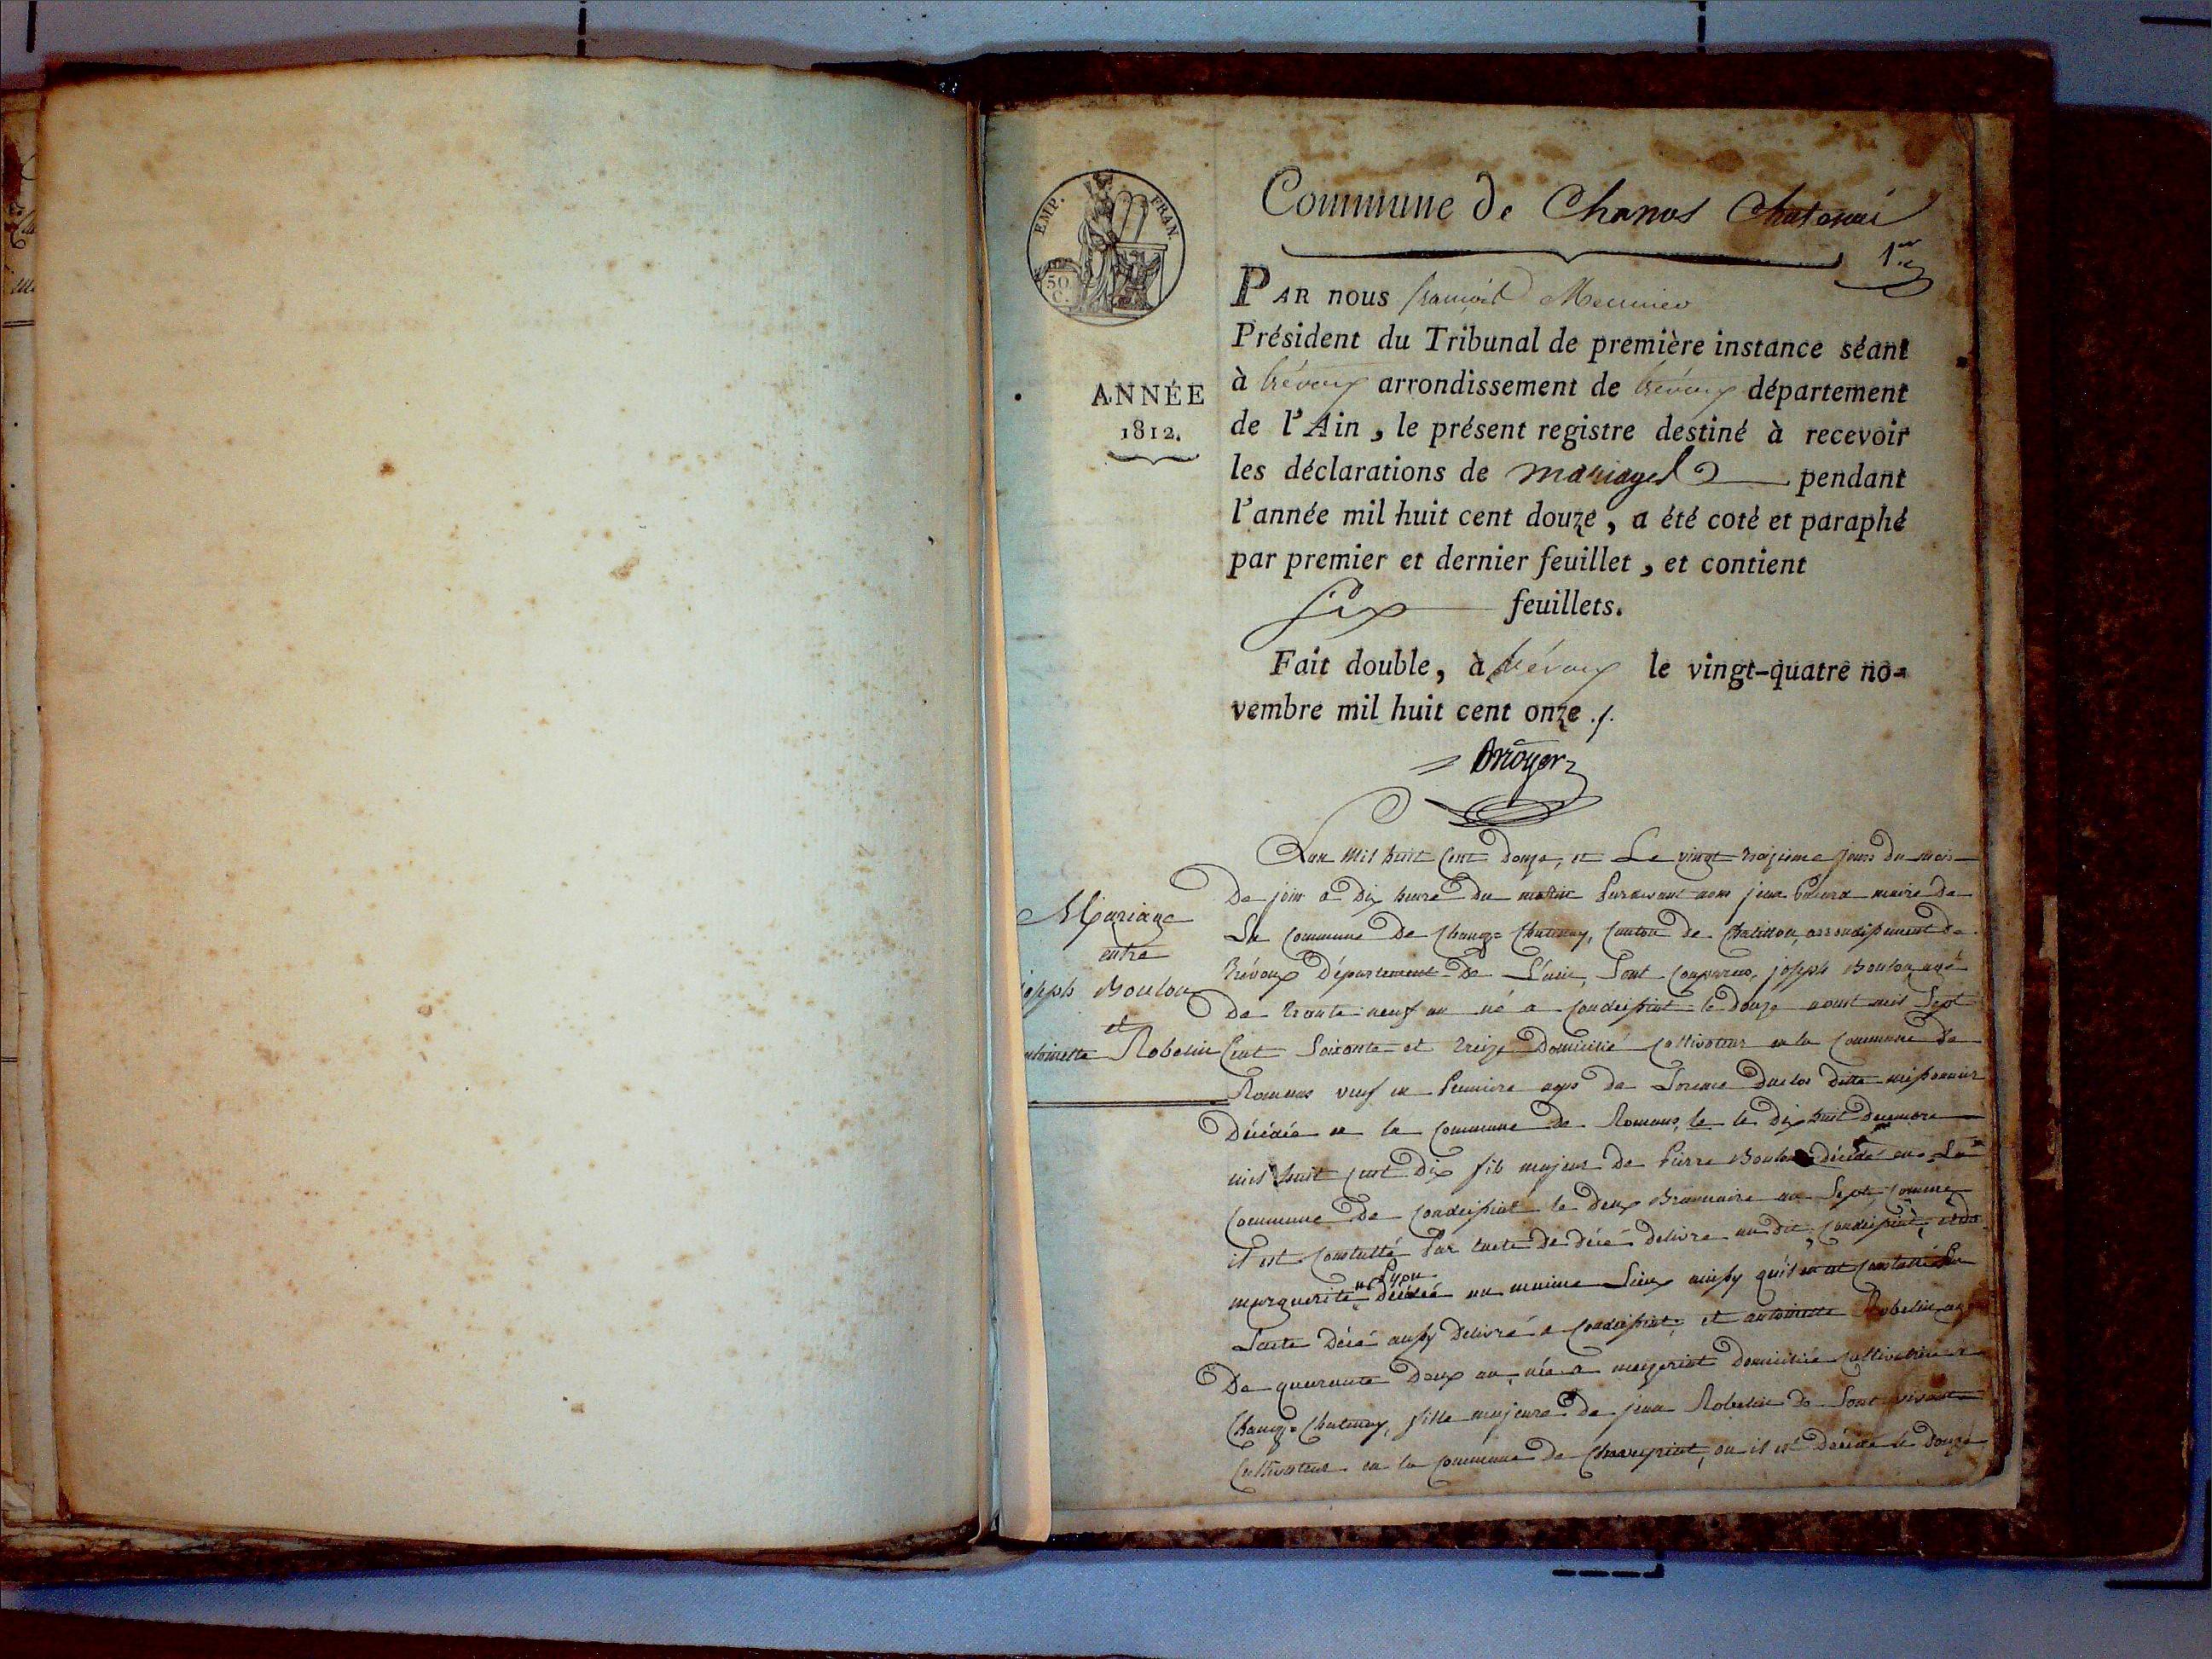 EMP. FRAN.
50
C.
Commune de Chanos Chatenai
1er
ANNÉE
1812.
PAR nous françois Meunier
Président du Tribunal de première instance séant
à trévoux arrondissement de trévoux département
de l'Ain, le présent registre destiné à recevoir
les déclarations de mariages pendant
l'année mil huit cent douze, a été coté et paraphé
par premier et dernier feuillet, et contient
six feuillets.
Fait double, à trévoux le vingt-quatre no-
vembre mil huit cent onze ./.
Mariage
entre
joseph Boulon
et
antoinette Robelin
L'an mil huit Cent Douze, et Le vingt troisieme jour du mois
De join a Dix heure Du matin pardevant nous jean maire De
La Commune De Chanoz=Chatenay, Canton De Chatillon, arrondissement De
trévoux Département De L'ain, Sont Comparus, joseph Boulon, agé
De trante neuf an né a Condeissiat le Douze aoust mil Sept
Cent Soixante et treize Domicilié Cultivateur en la Commune De
Romans veuf en premiere De Duclos Ditte
Décédée en la Commune De Romans, le le Dix huit Decembre
mil huit Cent Dix fils majeur De Pierre Boulon décédé en La
Commune De Condeissiat le Deux Brumaire an Sept, Comme
il est Constatté Par Lacte De décé Delivre au Dit Condeissiat, et De
marguerite Lyon Décédée au maime Lieux ainsy qu'il est Constatté Par
Lacte Décé aussy Delivré a Condeissiat, et antoinette Robelin agé
De quarante Deux an, née a mezeriat Domiciliée Cultivatrice a
Chanoz=Chatenay, fille majeure De jean Robelin De Son vivant
Cultivateur en la Commune De Chaveyriat, ou il est Décédé le Douze